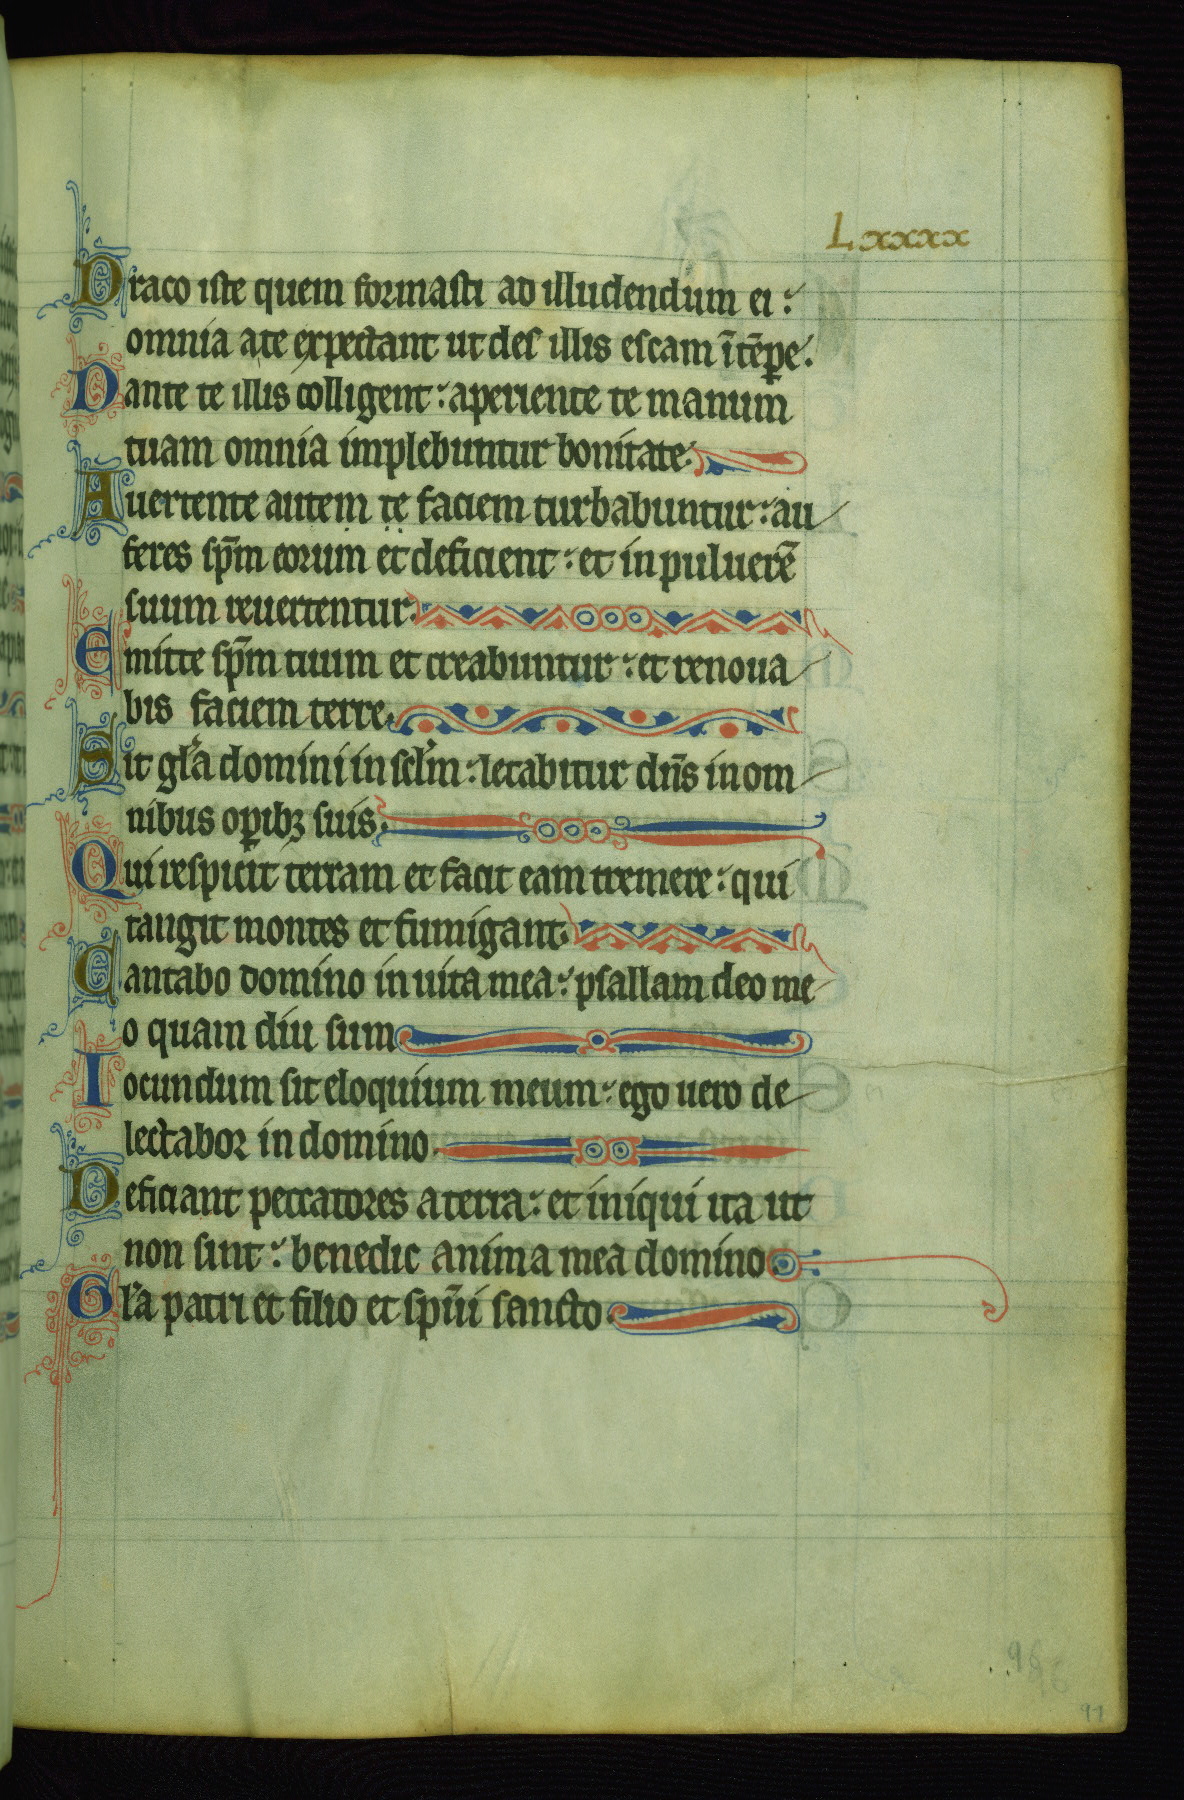 Lxxxx
Draco iste quem formasti ad illudendum ei:
omnia a te expectant ut des illis escam ītēꝑe.
Dante te illis colligent: aperiente te manum
tuam omnia implebuntur bonitate.
Auertente autem te faciem turbabuntur: au
feres sp̄m eorum et deficient: et in puluerē
suum reuertentur.
Emitte sp̄m tuum et creabuntur: et renoua
bis faciem terre.
Sit gl̄a domini in sc̄lm: letabitur dn̄s in om
nibus oꝑibꝫ suis.
Qui respicit terram et facit eam tremere: qui
tangit montes et fumigant.
Cantabo domino in uita mea: psallam deo me
o quam diu sum.
Iocundum sit eloquium meum: ego uero de
lectabor in domino.
Deficiant peccatores a terra: et iniqui ita ut
non sint: benedic anima mea domino.
Gl̄a patri et filio et sp̄ui sancto.
96
91